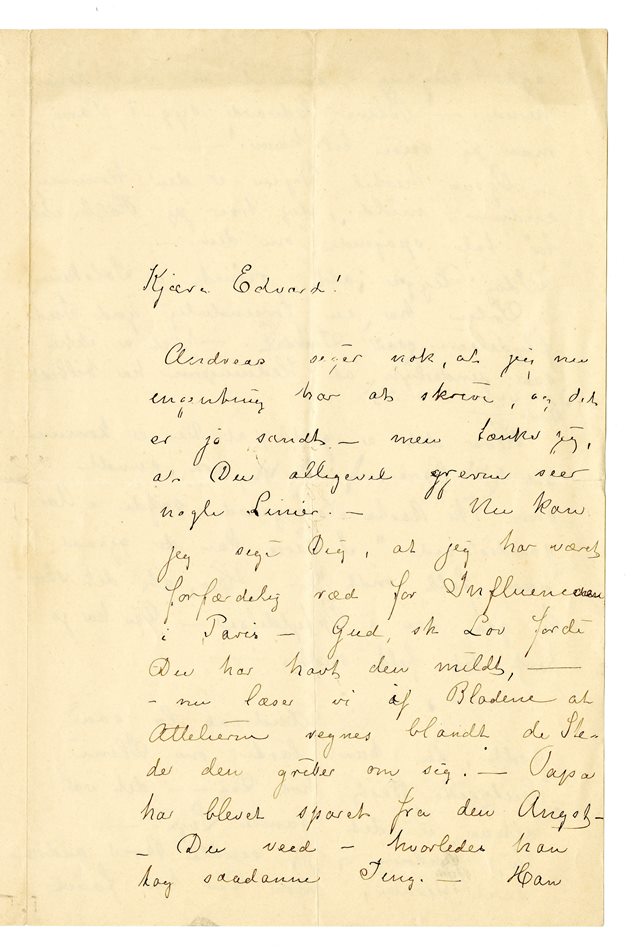 Kjære Edvard!
Andreas siger nok, at jeg nu
ingenting har at skrive, og det
er jo sandt – men tænker jeg,
at Du alligevel gjerne seer
nogle Linier. – Nu kan
jeg sige Dig, at jeg har været
forfærdelig ræd for Influencaen
i Paris – Gud sk Lov fordi
Du har havt den mildt, —
– nu læser vi af Bladene at
Atteliererne regnes blandt de Ste-
der den griber om sig. – Papa
har blevet sparet fra den Angst –
– Du veed – hvorledes han
tog saadanne Ting. – Han